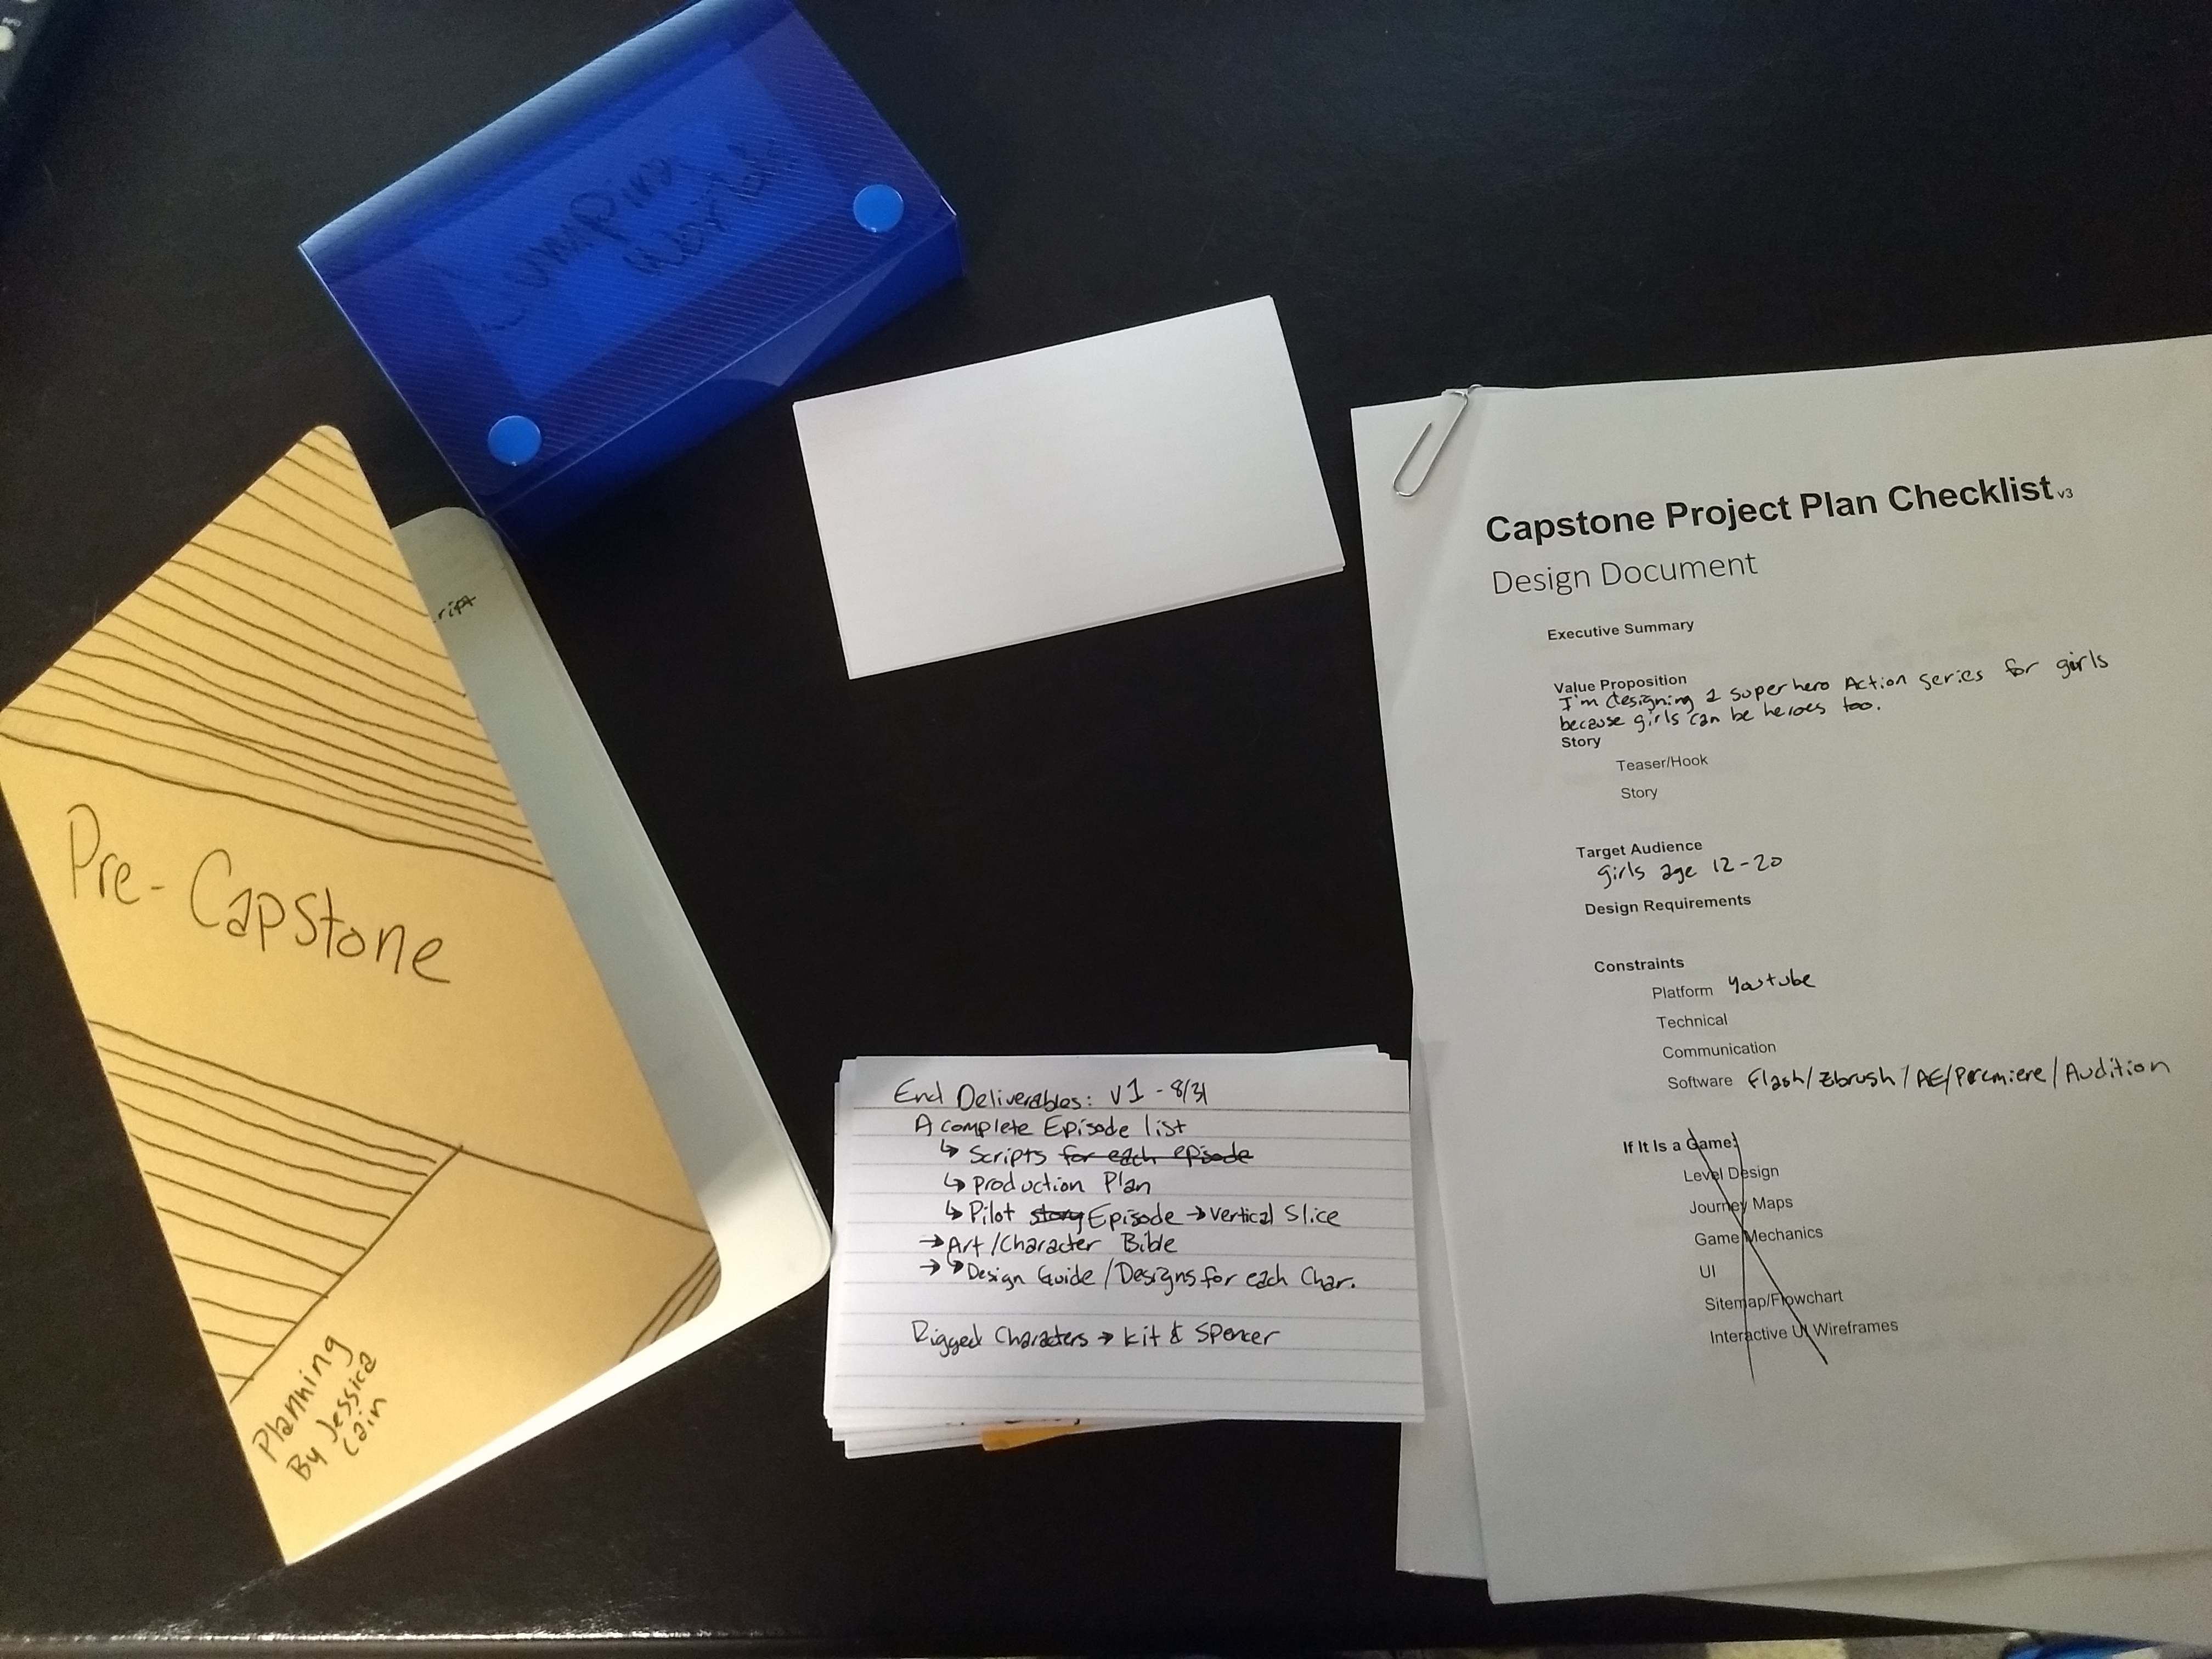 Jumping
Worlds
ript
Pre-Capstone
Planning
By Jessica
Cain
End Deliverables: v1 - 8/31
A complete Episode list
↳ Scripts for each episode
↳ Production Plan
↳ Pilot story Episode → Vertical Slice
→ Art/Character Bible
→ ↳ Design Guide/Designs for each Char.
Rigged Characters → Kit & Spencer
Capstone Project Plan Checklist v3
Design Document
Executive Summary
Value Proposition
I'm designing a superhero Action series for girls
because girls can be heroes too.
Story
Teaser/Hook
Story
Target Audience
girls age 12-20
Design Requirements
Constraints
Platform Youtube
Technical
Communication
Software Flash/Zbrush/AE/Premiere/Audition
If It Is a Game:
Level Design
Journey Maps
Game Mechanics
UI
Sitemap/Flowchart
Interactive UI Wireframes